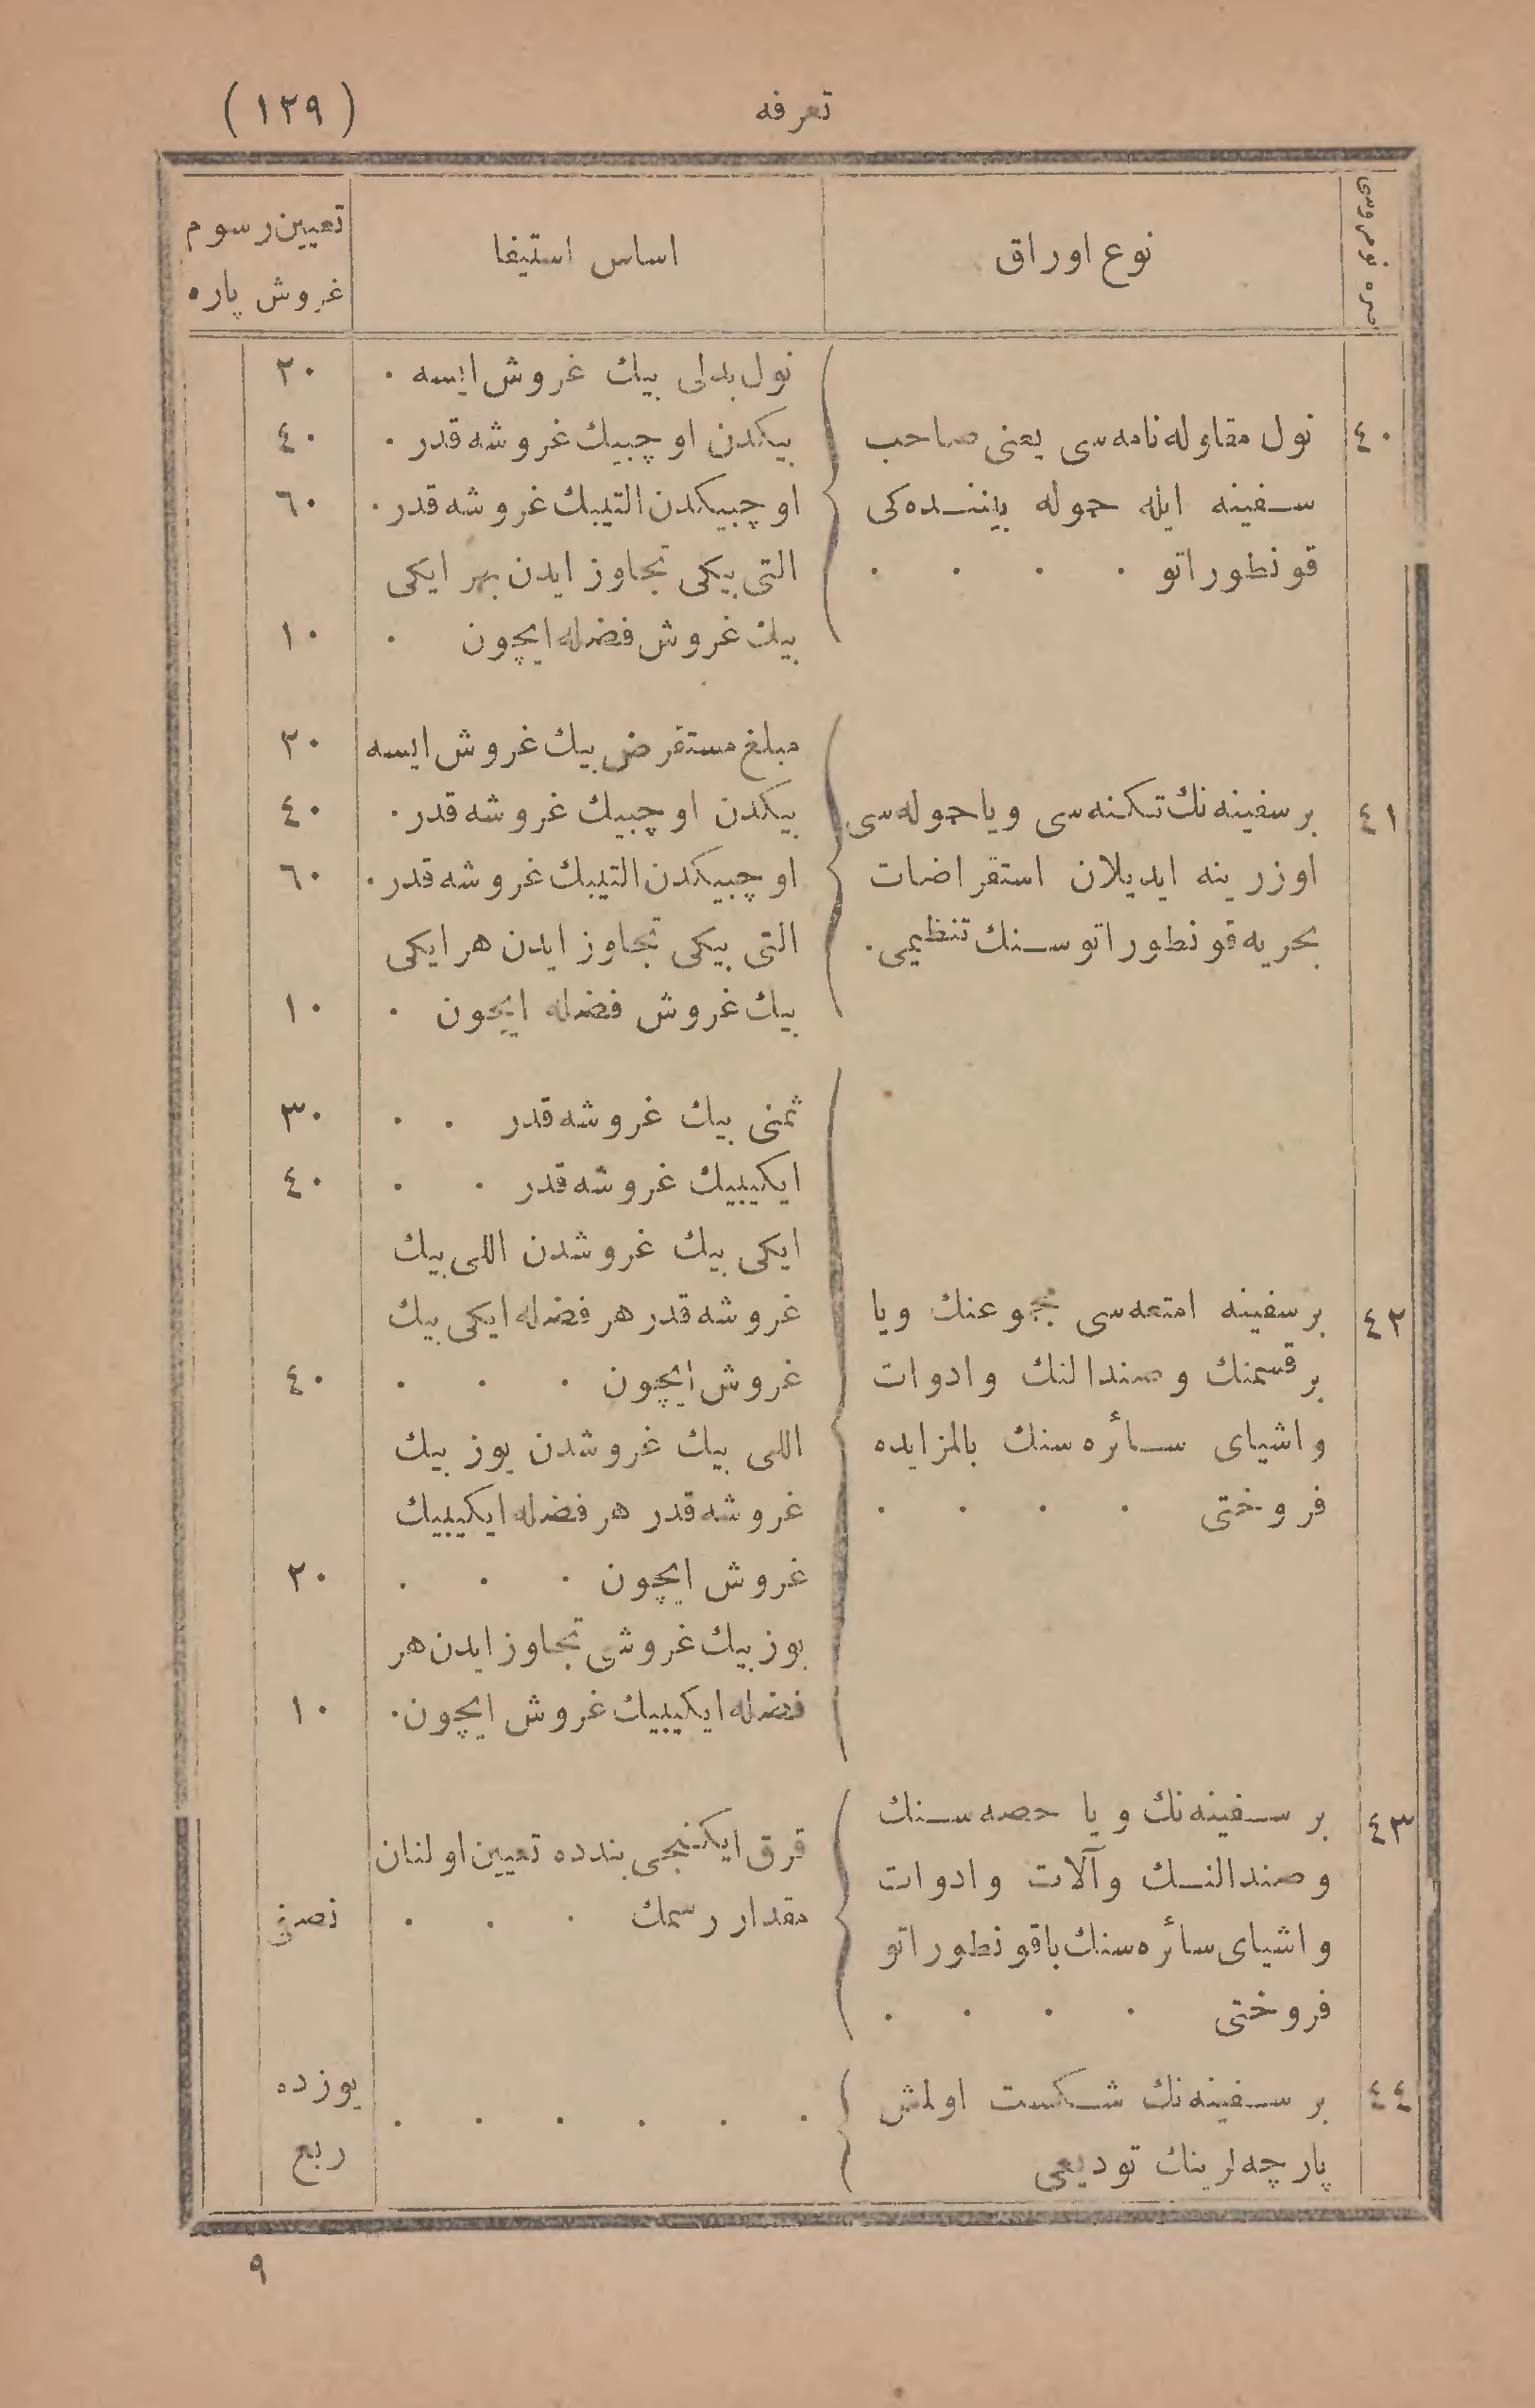 تعرفه
(١٢٩)
صره نومروسی
نوع اوراق
اساس استيفا
تعيين رسوم
غروش پاره
٤٠
نول مقاوله‌نامه‌سی يعنی صاحب
سفينه ايله حموله بيننده‌كی
قونطوراتو . . . .
نول بدلی بيك غروش ايسه .
٢٠
بيكدن اوچبيك غروشه قدر .
٤٠
اوچبيكدن التيبك غروشه قدر .
٦٠
التی بيكی تجاوز ايدن بهر ايكی
بيك غروش فضله ايچون .
١٠
٤١
بر سفينه‌نك تكنه‌سی ويا حموله‌سی
اوزرينه ايديلان استقراضات
بحريه قونطوراتوسنك تنظيمی .
مبلغ مستقرض بيك غروش ايسه
٢٠
بيكدن اوچبيك غروشه قدر .
٤٠
اوچبيكدن التيبك غروشه قدر .
٦٠
التی بيكی تجاوز ايدن هر ايكی
بيك غروش فضله ايچون .
١٠
٤٢
بر سفينه امتعه‌سی مجموعنك ويا
بر قسمنك وصندالنك وادوات
واشيای سائره‌سنك بالمزايده
فروختی . . . .
ثمنی بيك غروشه قدر . .
٣٠
ايكيبيك غروشه قدر . .
٤٠
ايكی بيك غروشدن اللی بيك
غروشه قدر هر فضله ايكی بيك
غروش ايچون . . .
٤٠
اللی بيك غروشدن يوز بيك
غروشه قدر هر فضله ايكيبيك
غروش ايچون . . .
٢٠
يوز بيك غروشی تجاوز ايدن هر
فضله ايكيبيك غروش ايچون .
١٠
٤٣
بر سفينه‌نك ويا حصه‌سنك
وصندالنك وآلات وادوات
واشيای سائره‌سنك باقونطوراتو
فروختی . . . .
قرق ايكنجی بندده تعيين اولنان
مقدار رسمك . . .
نصفی
٤٤
بر سفينه‌نك شكست اولمش
پارچه‌لرينك توديعی
. . . . . .
يوزده
ربع
٩